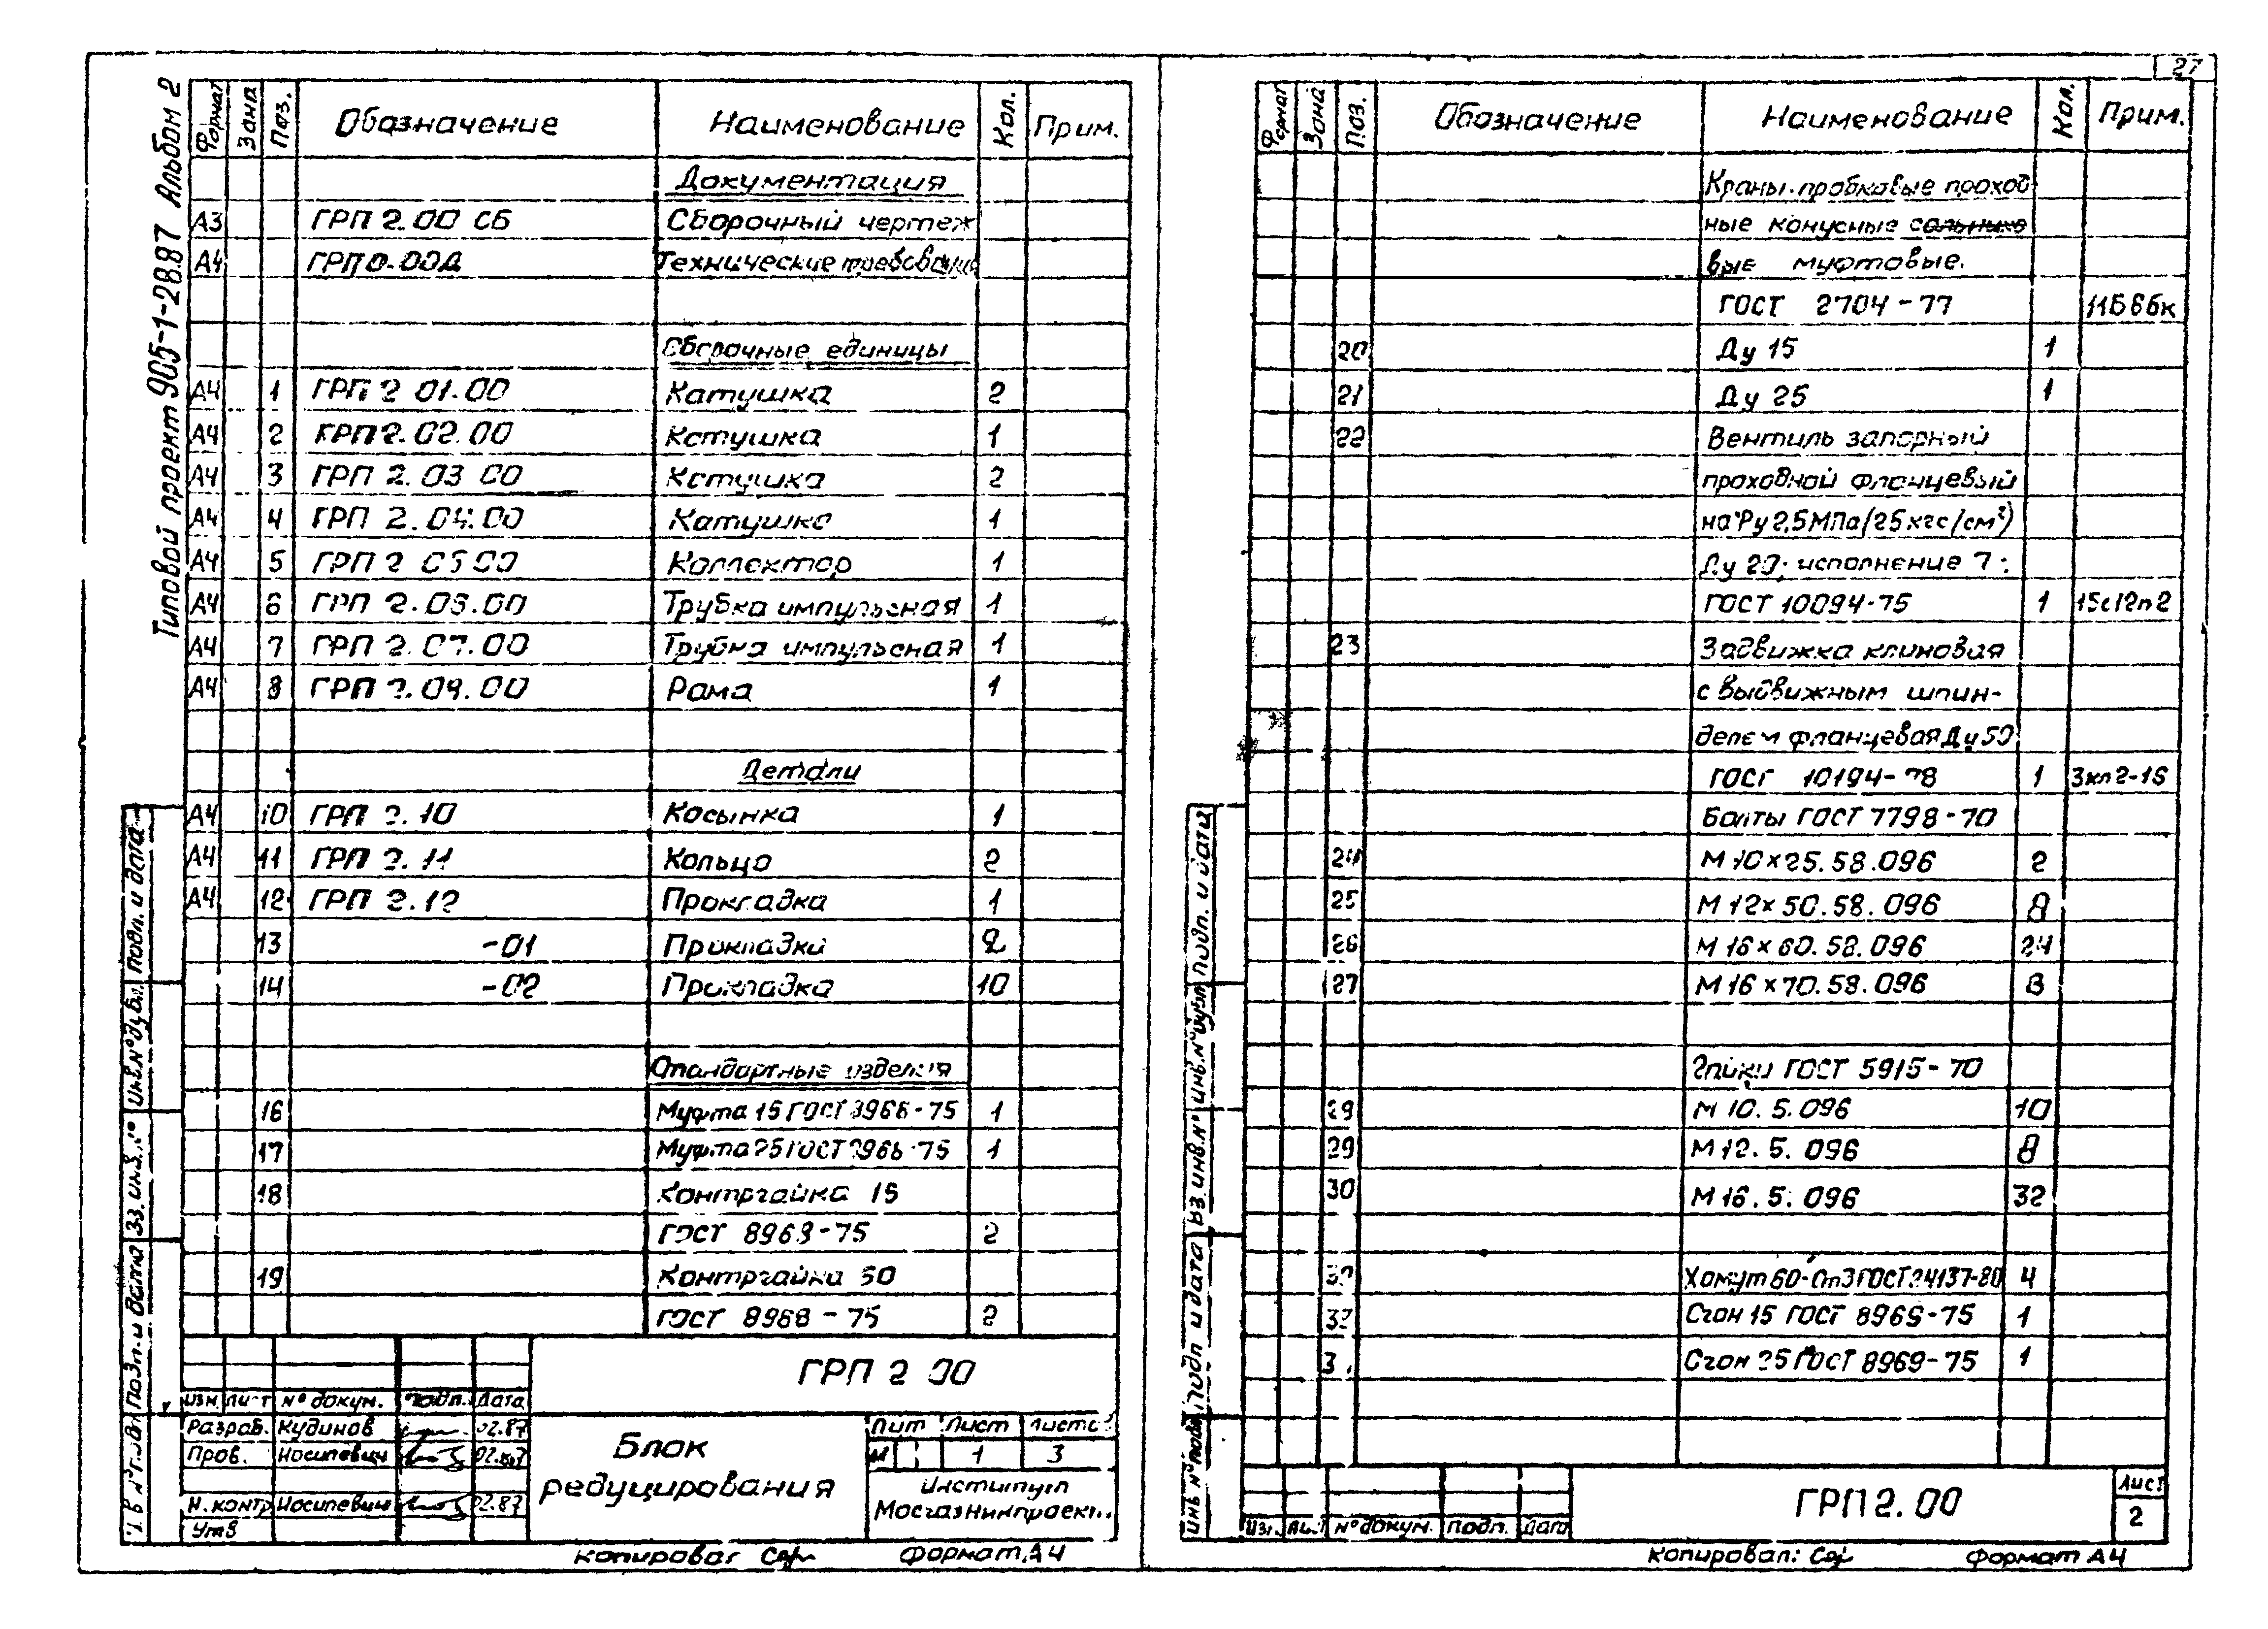 27
Типовой проект 905-1-28.87 Альбом 2
Формат Зона Поз. Обозначение Наименование Кол. Прим.
Документация
А3 ГРП 2.00 СБ Сборочный чертеж
А4 ГРП 0.00Д Технические требования
Сборочные единицы
А4 1 ГРП 2 01.00 Катушка 2
А4 2 ГРП 2.02.00 Катушка 1
А4 3 ГРП 2.03 00 Катушка 2
А4 4 ГРП 2.04.00 Катушка 1
А4 5 ГРП 2 05 00 Коллектор 1
А4 6 ГРП 2.06.00 Трубка импульсная 1
А4 7 ГРП 2.07.00 Трубка импульсная 1
А4 8 ГРП 2.09.00 Рама 1
Детали
А4 10 ГРП 2.10 Косынка 1
А4 11 ГРП 2.11 Кольцо 2
А4 12 ГРП 2.12 Прокладка 1
13 -01 Прокладка 2
14 -02 Прокладка 10
Стандартные изделия
16 Муфта 15 ГОСТ 8966-75 1
17 Муфта 25 ГОСТ 8966-75 1
18 Контргайка 15
ГОСТ 8968-75 2
19 Контргайка 50
ГОСТ 8968-75 2
ГРП 2 00
Изм. Лист № докум. Подп. Дата
Разраб. Кудинов 02.87
Пров. Иосилевич 02.87
Н.контр Иосилевич 02.87
Утв
Блок
редуцирования
Лит Лист Листов
И 1 3
Институт
Мосгазниипроект
Копировал Формат А4
Подп. и дата
Инв.№ дубл.
Вз. инв.№
Подп. и дата
Инв №подл
Формат Зона Поз. Обозначение Наименование Кол. Прим.
Краны пробковые проход
ные конусные сальнико
вые муфтовые.
ГОСТ 2704-77 11Б6бк
20 Ду 15 1
21 Ду 25 1
22 Вентиль запорный
проходной фланцевый
на Ру 2,5МПа (25 кгс/см²)
Ду 20; исполнение 7;
ГОСТ 10094-75 1 15с12п2
23 Задвижка клиновая
с выдвижным шпин-
делем фланцевая Ду 50
ГОСТ 10194-78 1 Зкл2-16
Болты ГОСТ 7798-70
24 М 10×25.58.096 2
25 М 12×50.58.096 8
26 М 16×60.58.096 24
27 М 16×70.58.096 8
Гайки ГОСТ 5915-70
М 10.5.096 10
29 М 12.5.096 8
30 М 16.5.096 32
Хомут 60-Ст3 ГОСТ 24137-80 4
Сгон 15 ГОСТ 8969-75 1
Сгон 25 ГОСТ 8969-75 1
Изм. Лист № докум. Подп. Дата
ГРП 2.00
Лист
2
Копировал: Формат А4
Подп. и дата
Инв.№ дубл
Вз. инв.№
Подп и дата
Инв №подл